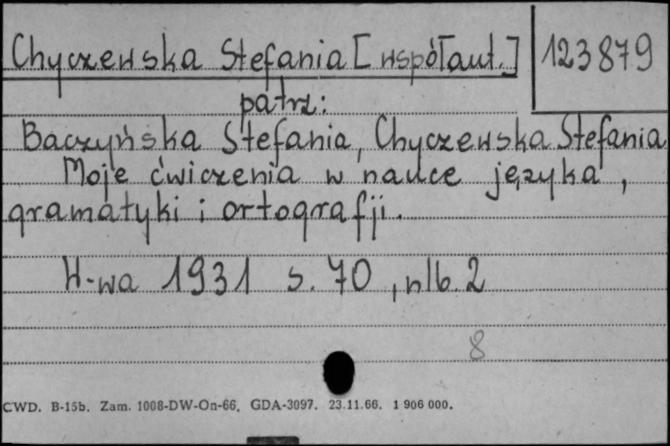 Chyczewska Stefania [współaut.] 123879
patrz:
Baczyńska Stefania, Chyczewska Stefania
Moje ćwiczenia w nauce języka,
gramatyki i ortografji.
W-wa 1931 s. 70, nlb. 2
8
CWD. B-15b. Zam. 1008-DW-On-66. GDA-3097. 23.11.66. 1 906 000.